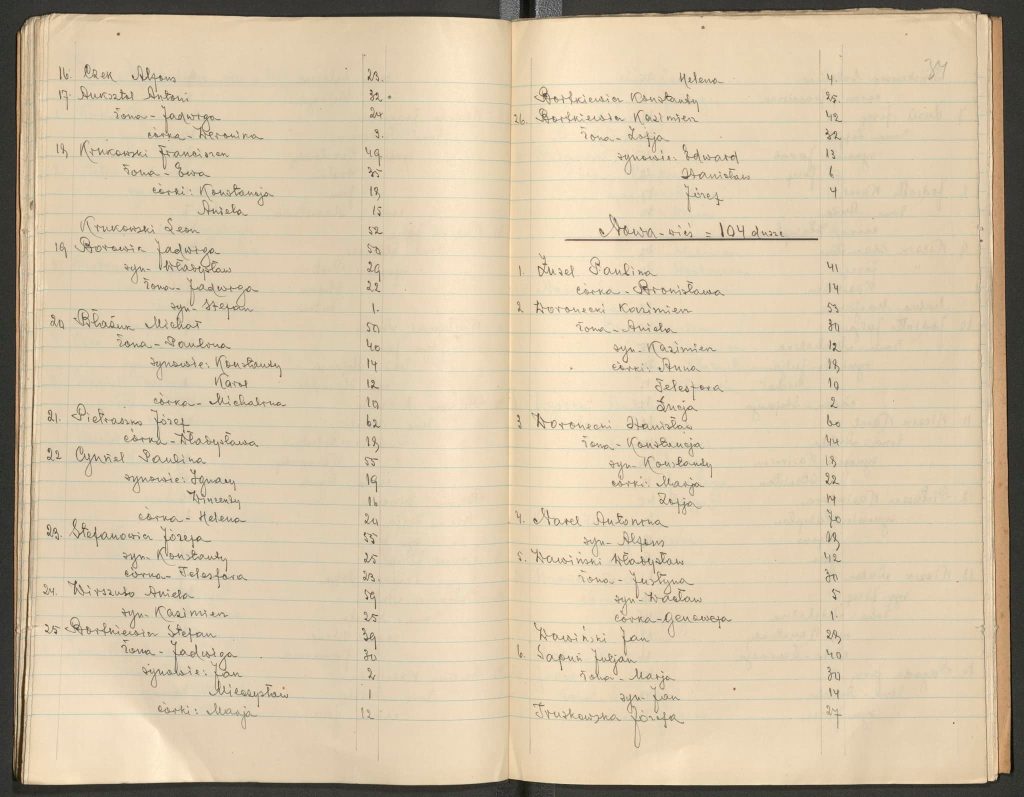 16. Czek Alfons 23.
17. Auksztol Antoni 32
żona - Jadwiga 24
córka - Weronina 3.
18. Krukowski Franciszek 49
żona - Ewa 35
córki: Konstancja 18
Aniela 15
Krukowski Leon 52
19 Borowic Jadwiga 50
syn - Władysław 29
żona - Jadwiga 22
syn - Stefan 1.
20 Błażuk Michał 50
żona - Paulina 40
synowie: Konstanty 14
Karol 12
córka - Michalina 10
21. Pietraszun Józef 62
córka - Władysława 18
22 Cynkel Paulina 55
synowie: Ignacy 19
Wincenty 16
córka - Helena 24
23. Stefanowicz Józefa 55
syn - Konstanty 25
córka - Telesfora 23.
24. Wirszuto Aniela 59
syn - Kazimierz 25
25 Bortkiewicz Stefan 39
żona - Jadwiga 30
synowie: Jan 2
Mieczysław 1
córki: Marja 12
34
Helena 4.
Bortkiewicz Konstanty 25.
26. Bortkiewicz Kazimierz 42
żona - Zofja 32
synowie: Edward 13
Stanisław 6
Józef 4
Nowa-wieś = 104 dusze
1. Zuzel Paulina 41
córka - Bronisława 14
2 Woronecki Kazimierz 53
żona - Aniela 30
syn - Kazimierz 12
córki: Anna 18
Telesfora 10
Łucja 2
3 Woronecki Stanisław 60
żona - Konstancja 44
syn - Konstanty 18
córki: Marja 22
Zofja 14
4. Narel Antonina 70
syn - Alfons 18
5. Dawiński Władysław 42
żona - Justyna 30
syn - Wacław 5
córka - Genowefa 1.
Dawiński Jan 28
6. Sapuń Juljan 40
żona - Marja 30
syn - Jan 14
Truskowska Józefa 27